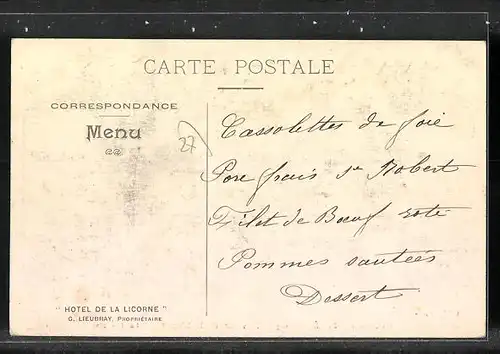 CARTE POSTALE
CORRESPONDANCE
Menu
27
Cassolettes de foie
Porc frais sce Robert
Filet de Bœuf roti
Pommes sautées
Dessert
"HOTEL DE LA LICORNE"
G. LIEUBRAY, PROPRIÉTAIRE